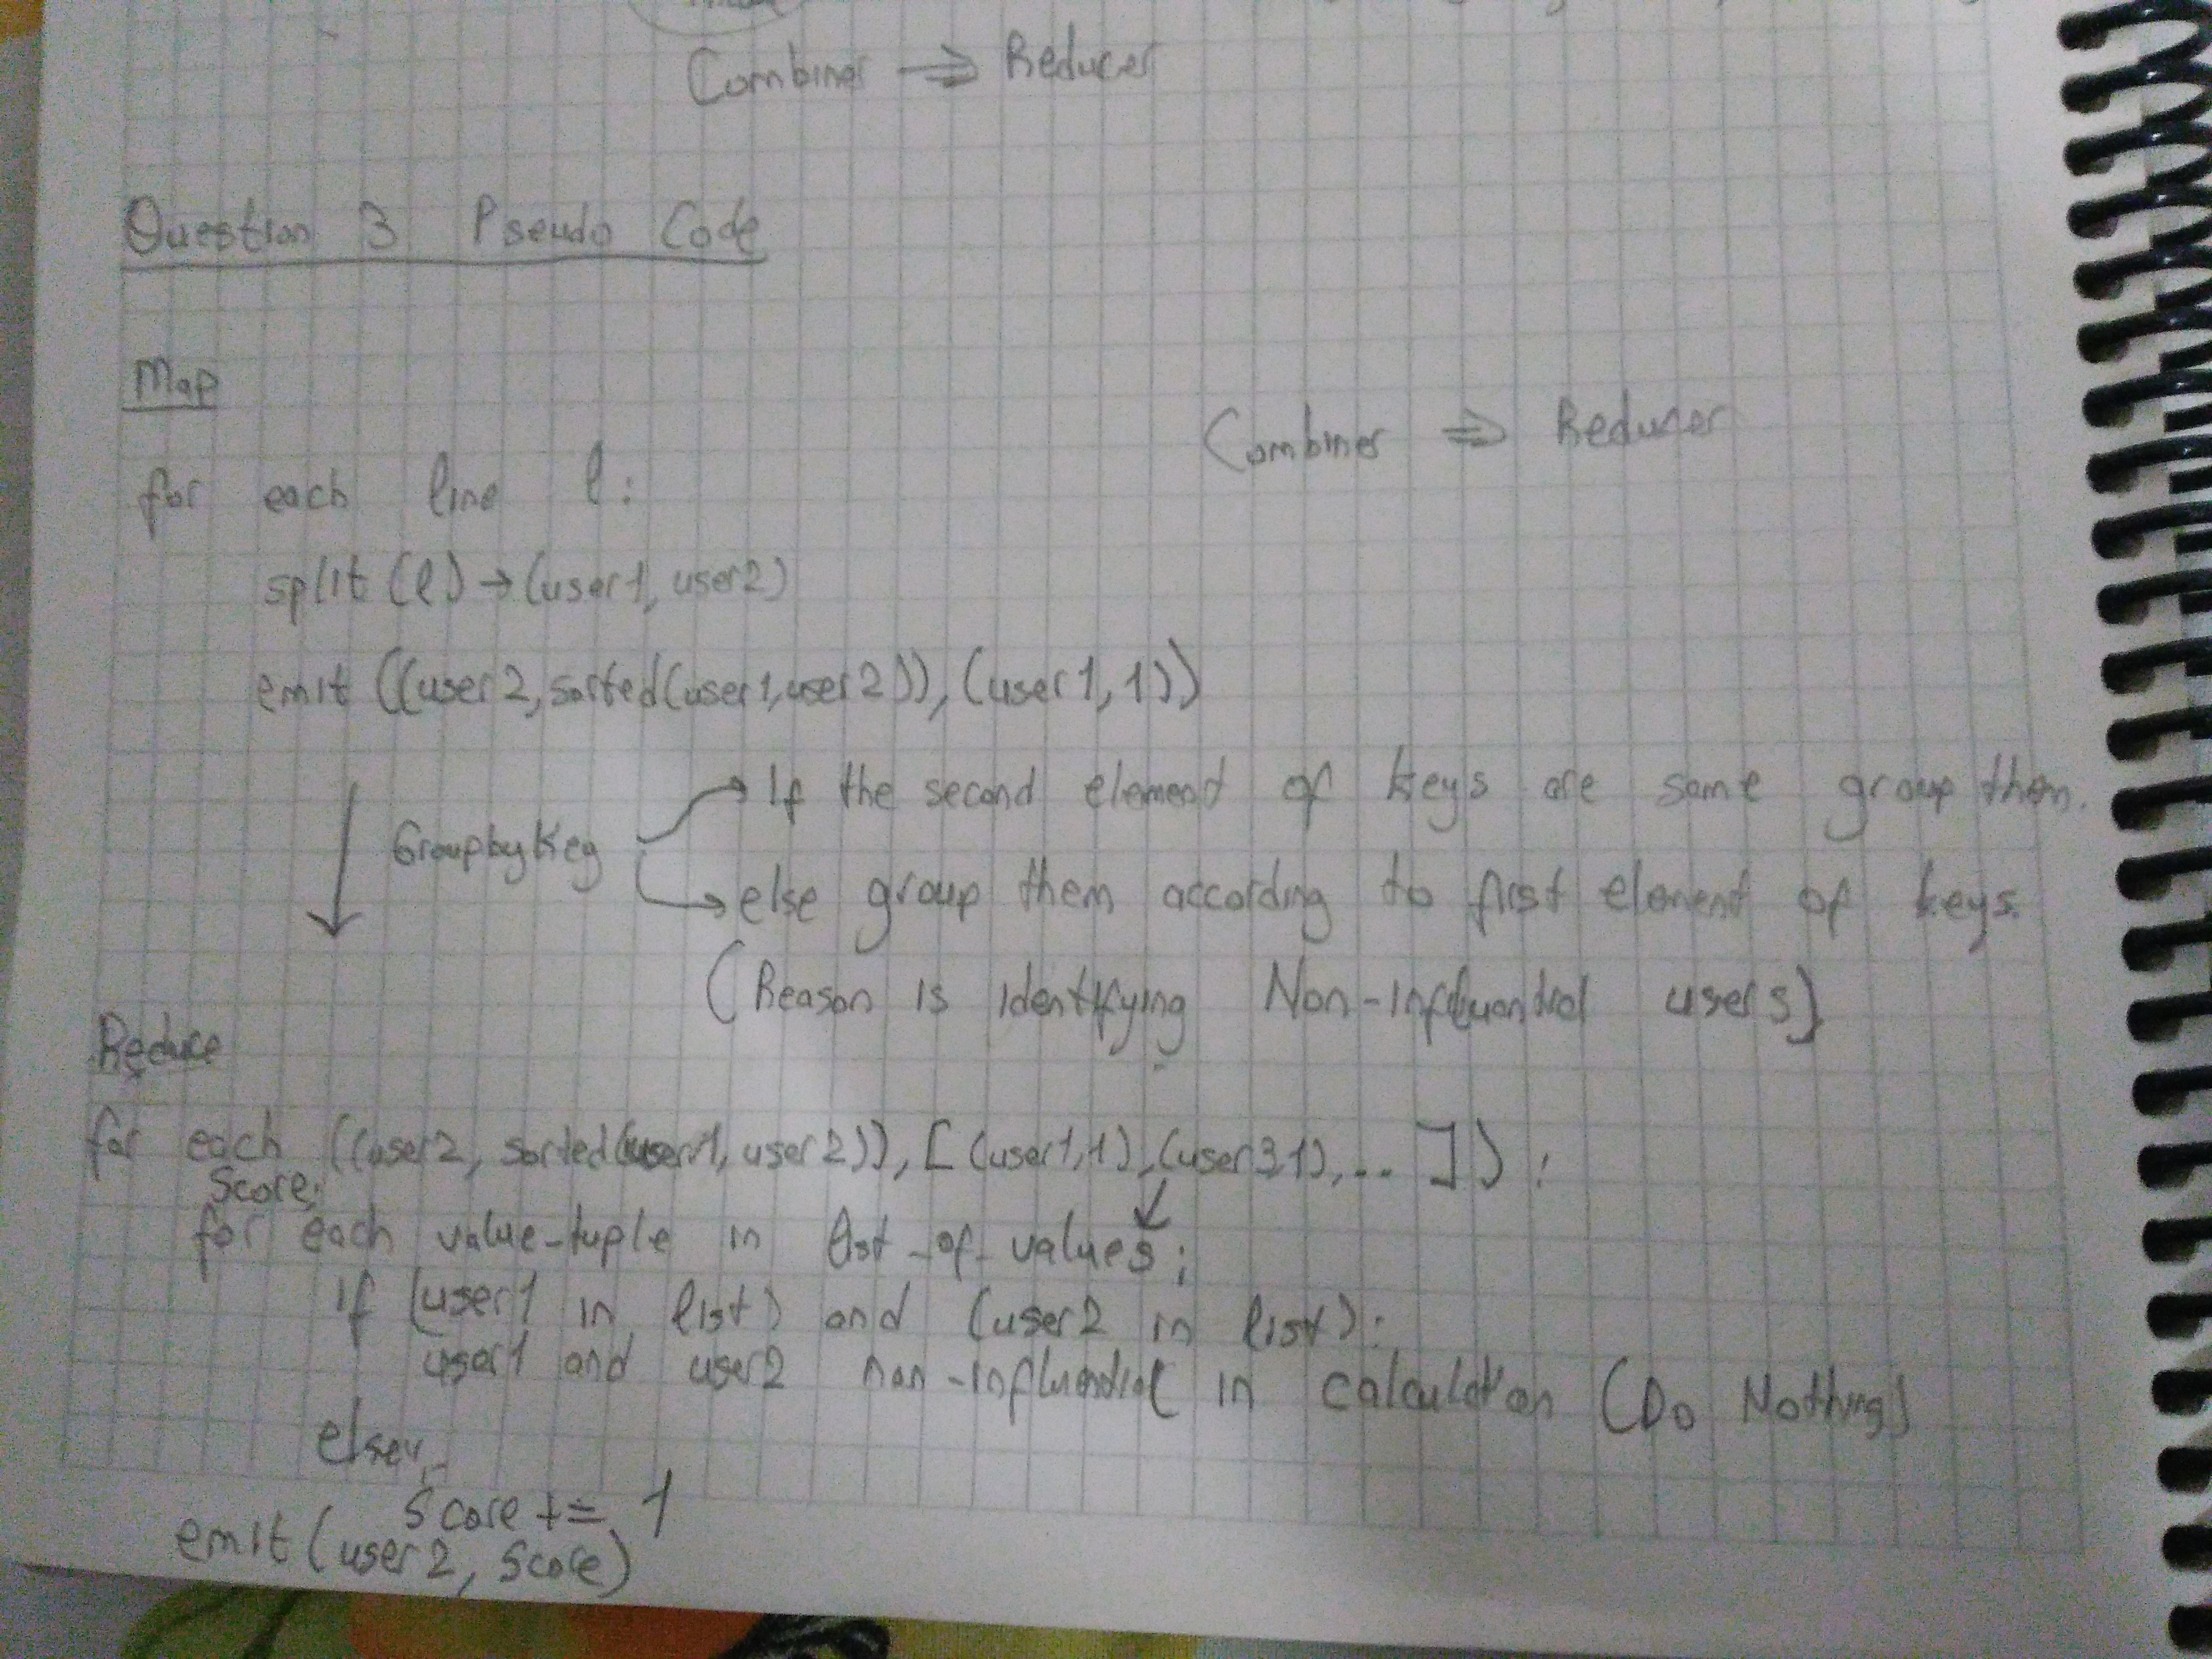 Combiner ⇒ Reducer
Question 3 Pseudo Code
Map
Combiner ⇒ Reducer
for each line l:
split(l) → (user1, user2)
emit ((user2, sorted(user1, user2)), (user1, 1))
GroupbyKey
→ If the second element of keys are same group them.
→ else group them according to first element of keys.
(Reason is identifying Non-influential users)
Reduce
for each ((user2, sorted(user1, user2)), [(user1,1), (user3,1), ... ]) :
Score;
for each value-tuple in list-of-values;
if (user1 in list) and (user2 in list):
user1 and user2 non-influential in calculation (Do Nothing)
else:
Score += 1
emit (user2, Score)